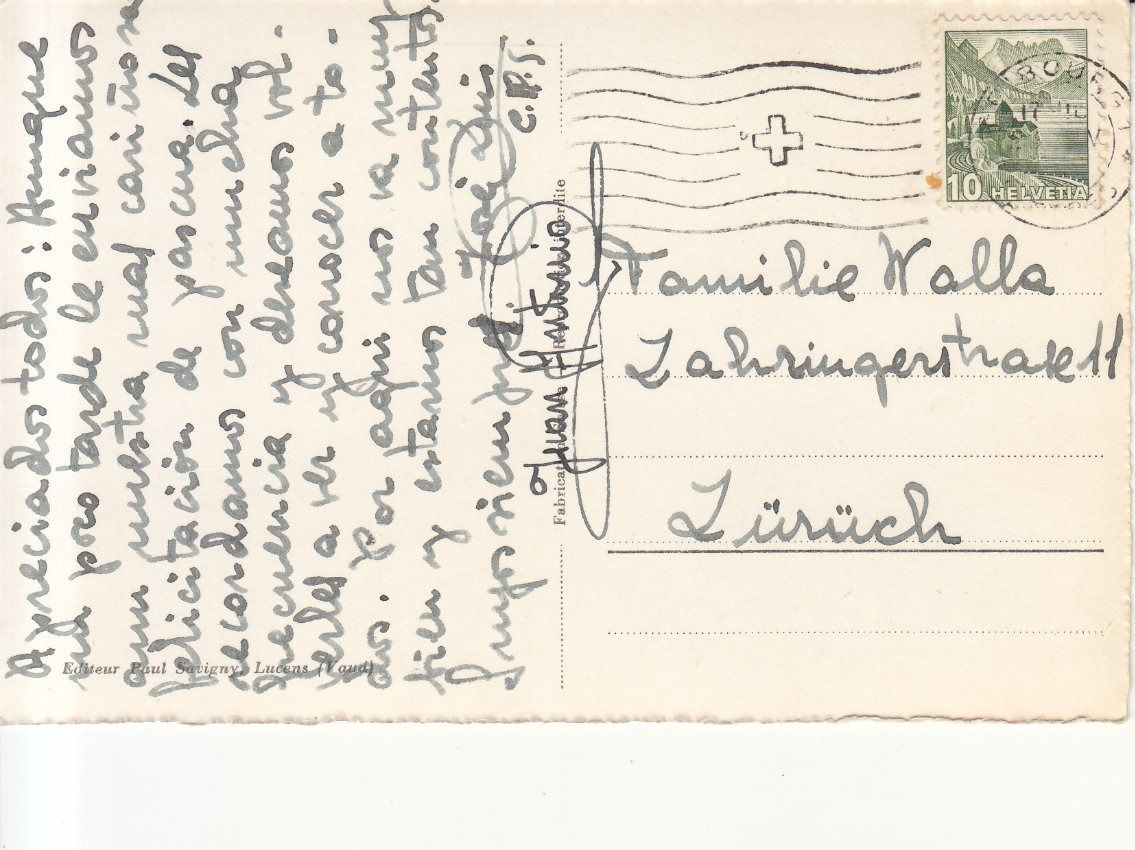 Apreciados todos: Aunque
un poco tarde le enviamos
nuestra mas cariñosa
felicitación de pascua. Les
recordamos con mucha
frecuencia y deseamos vol-
verles a ver y conocer a to-
dos. Por aqui nos va muy
bien y estamos tan contentos.
Suyos siem
José Luis
C.P.S.
Juan Antonio
Editeur Paul Savigny, Lucens (Vaud)
Fabrication
interdite
10 HELVETIA
Familie Walla
Zahringerstrasse 11
Zürüch